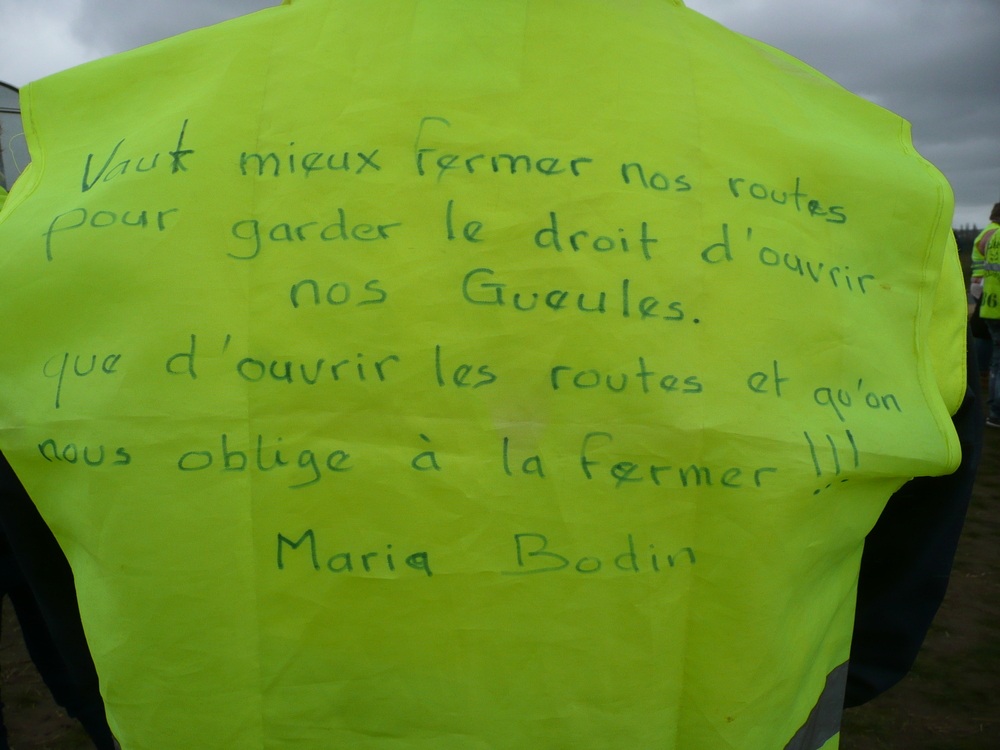 Vaut mieux fermer nos routes
pour garder le droit d'ouvrir
nos Gueules.
que d'ouvrir les routes et qu'on
nous oblige à la fermer !!!
Maria Bodin